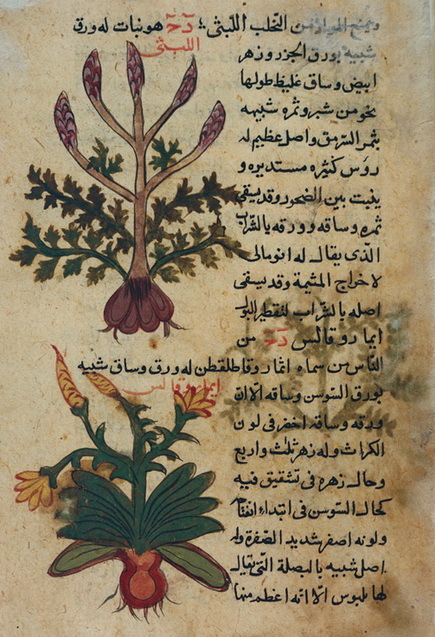 من التحلب اللبثى دح هو نبات له ورق
اللبثى
شبيه بورق الجزر وزهر
ابيض وساق غليظ طولها
نحو من شبر وثمره شبيهه
بثمر السرمق واصل عظيم له
رؤس كثيره مستديره و
ينبت بين الصخور وقد يسقى
ثمره وساقه وورقه بالشراب
الذى يقال له انومالى
لاخراج المشيمة وقد يسقى
اصله بالشراب لتقطير البول
ايماروقالس دح من
الناس من سماه له ورق وساق شبيه
ايماروقالس
بورق السوسن وساقه الا ان
ورقه وساقه اخضر فى لون
الكراث وله زهر ثلث واربع
وحال زهره فى تشقيق فيه
كحال السوسن فى ابتداء انفتاح
ولونه اصفر شديد الصفرة وله
اصل شبيه بالبصلة التى يقال
لها بلبوس الا انه اعظم منها